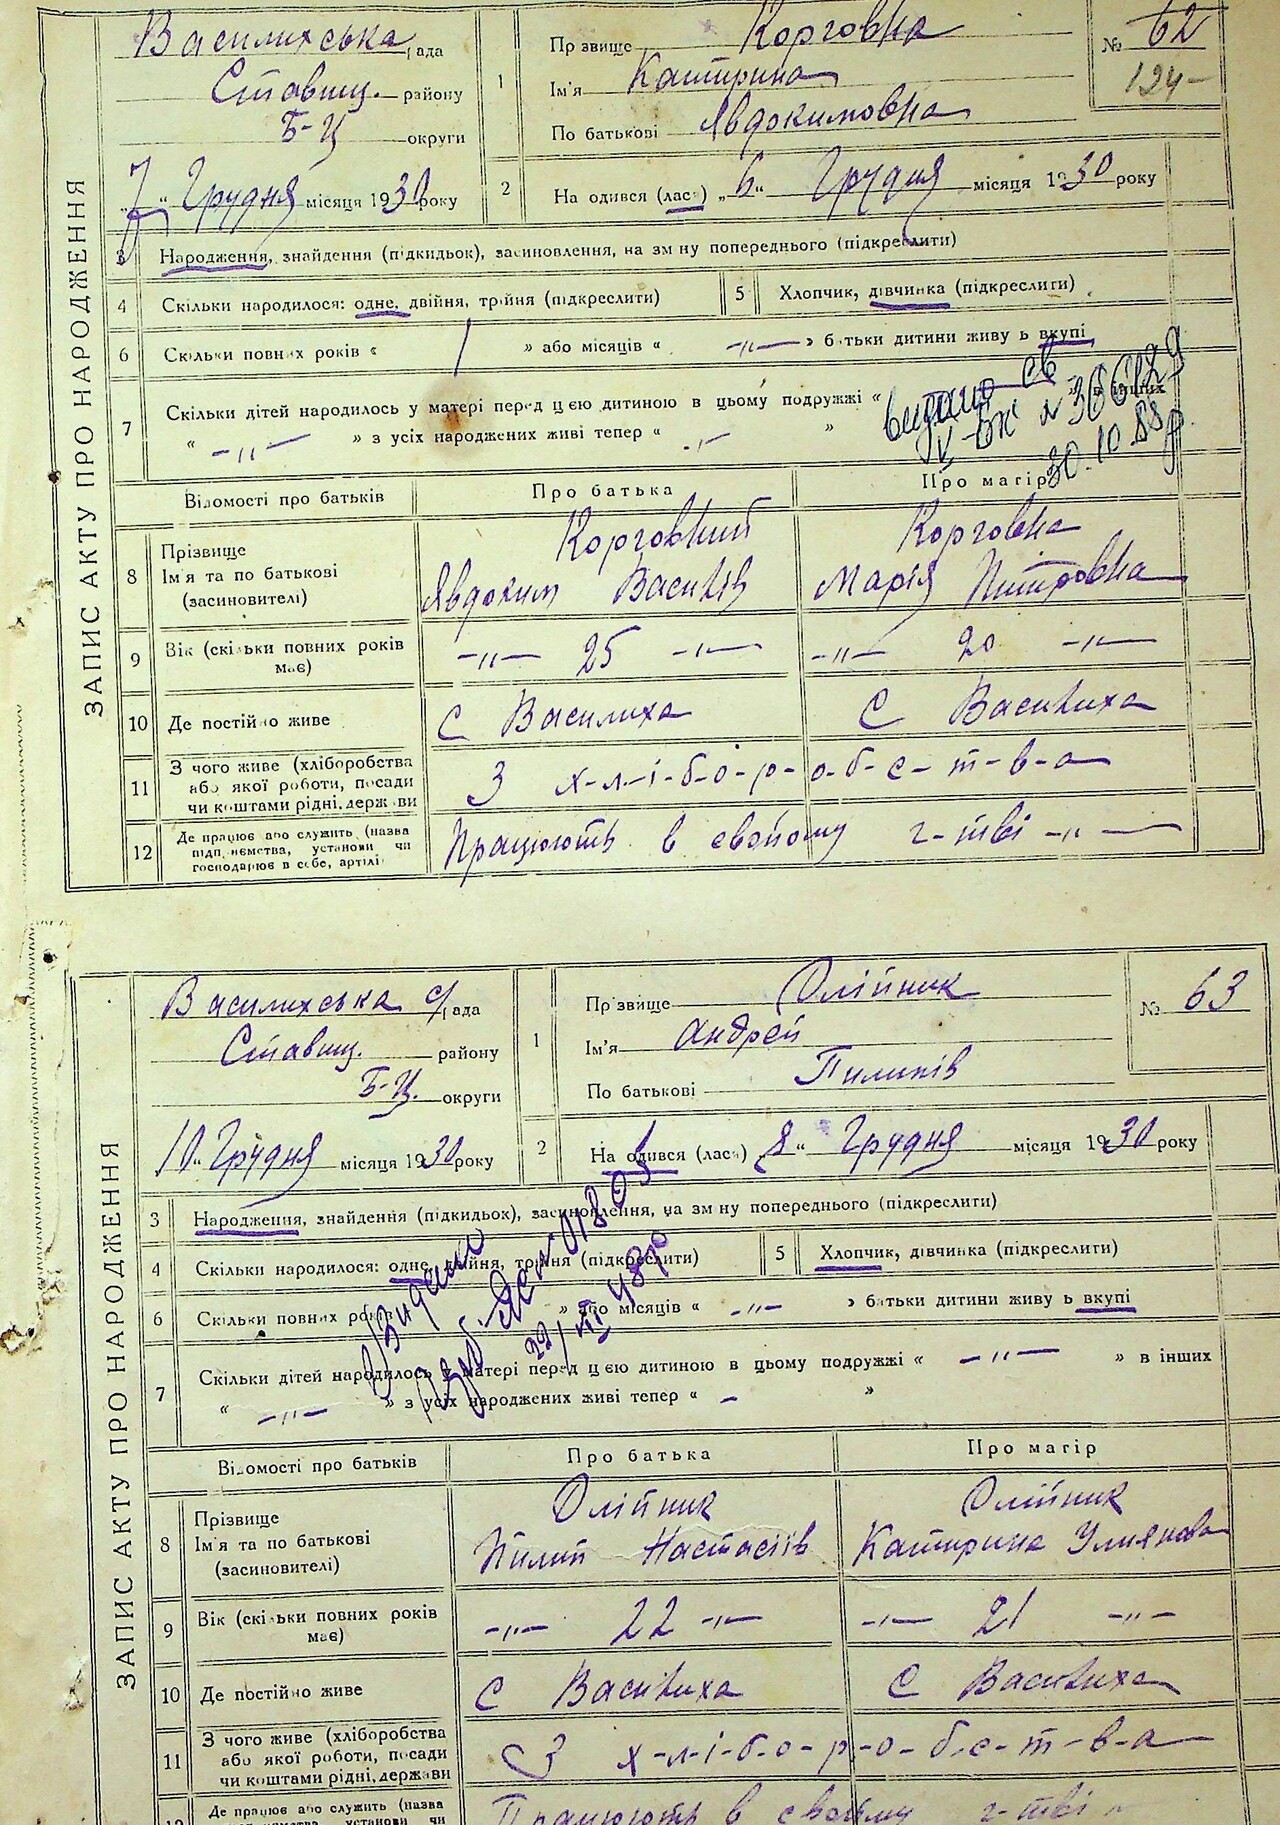 ЗАПИС АКТУ ПРО НАРОДЖЕННЯ
Василихська рада
Ставищ. району
Б-Ц округи
7 " Грудня місяця 1930 року
1
Прізвище Корговна
Ім'я Катирина
По батькові Явдокимовна
№ 62
124-
2
Народився (лась) „6" Грудня місяця 1930 року
3 Народження, знайдення (підкидьок), засиновлення, на зміну попереднього (підкреслити)
4 Скільки народилося: одне, двійня, трійня (підкреслити)
5 Хлопчик, дівчинка (підкреслити)
6 Скільки повних років « 1 » або місяців « -"- » батьки дитини живуть вкупі
7 Скільки дітей народилось у матері перед цією дитиною в цьому подружжі « » в інших
« -"- » з усіх народжених живі тепер « -"- »
видано св
V-БК № 366129
30.10.88р.
Відомості про батьків Про батька Про матір
8 Прізвище
Ім'я та по батькові
(засиновителі)
Корговний
Явдоким Василів
Корговна
Марія Питровна
9 Вік (скільки повних років має)
-"- 25 -"- -"- 20 -"-
10 Де постійно живе
С Василиха С Василиха
11 З чого живе (хліборобства
або якої роботи, посади
чи коштами рідні, держави
З х-л-і-б-о-р-о-б-с-т-в-а
12 Де працює або служить (назва
підприємства, установи чи
господарює в себе, артілі
Працюють в свойому г-тві -"-
ЗАПИС АКТУ ПРО НАРОДЖЕННЯ
Василихська с/рада
Ставищ. району
Б-Ц. округи
10 " Грудня місяця 1930 року
1
Прізвище Олійник
Ім'я Андрей
По батькові Пилипів
№ 63
2
Народився (лась) 8 " Грудня місяця 1930 року
3 Народження, знайдення (підкидьок), засиновлення, на зміну попереднього (підкреслити)
4 Скільки народилося: одне, двійня, трійня (підкреслити)
5 Хлопчик, дівчинка (підкреслити)
6 Скільки повних років » або місяців « -"- » батьки дитини живуть вкупі
7 Скільки дітей народилось у матері перед цією дитиною в цьому подружжі « -"- » в інших
« -"- » з усіх народжених живі тепер « - »
Видано
22/XII 48р
Відомості про батьків Про батька Про матір
8 Прізвище
Ім'я та по батькові
(засиновителі)
Олійник
Пилип Настасіїв
Олійник
Катирина Улиянова
9 Вік (скільки повних років має)
-"- 22 -"- -"- 21 -"-
10 Де постійно живе
С Василиха С Василиха
11 З чого живе (хліборобства
або якої роботи, посади
чи коштами рідні, держави
З х-л-і-б-о-р-о-б-с-т-в-а
12 Де працює або служить (назва
підприємства, установи чи
Працюють в свойму г-тві